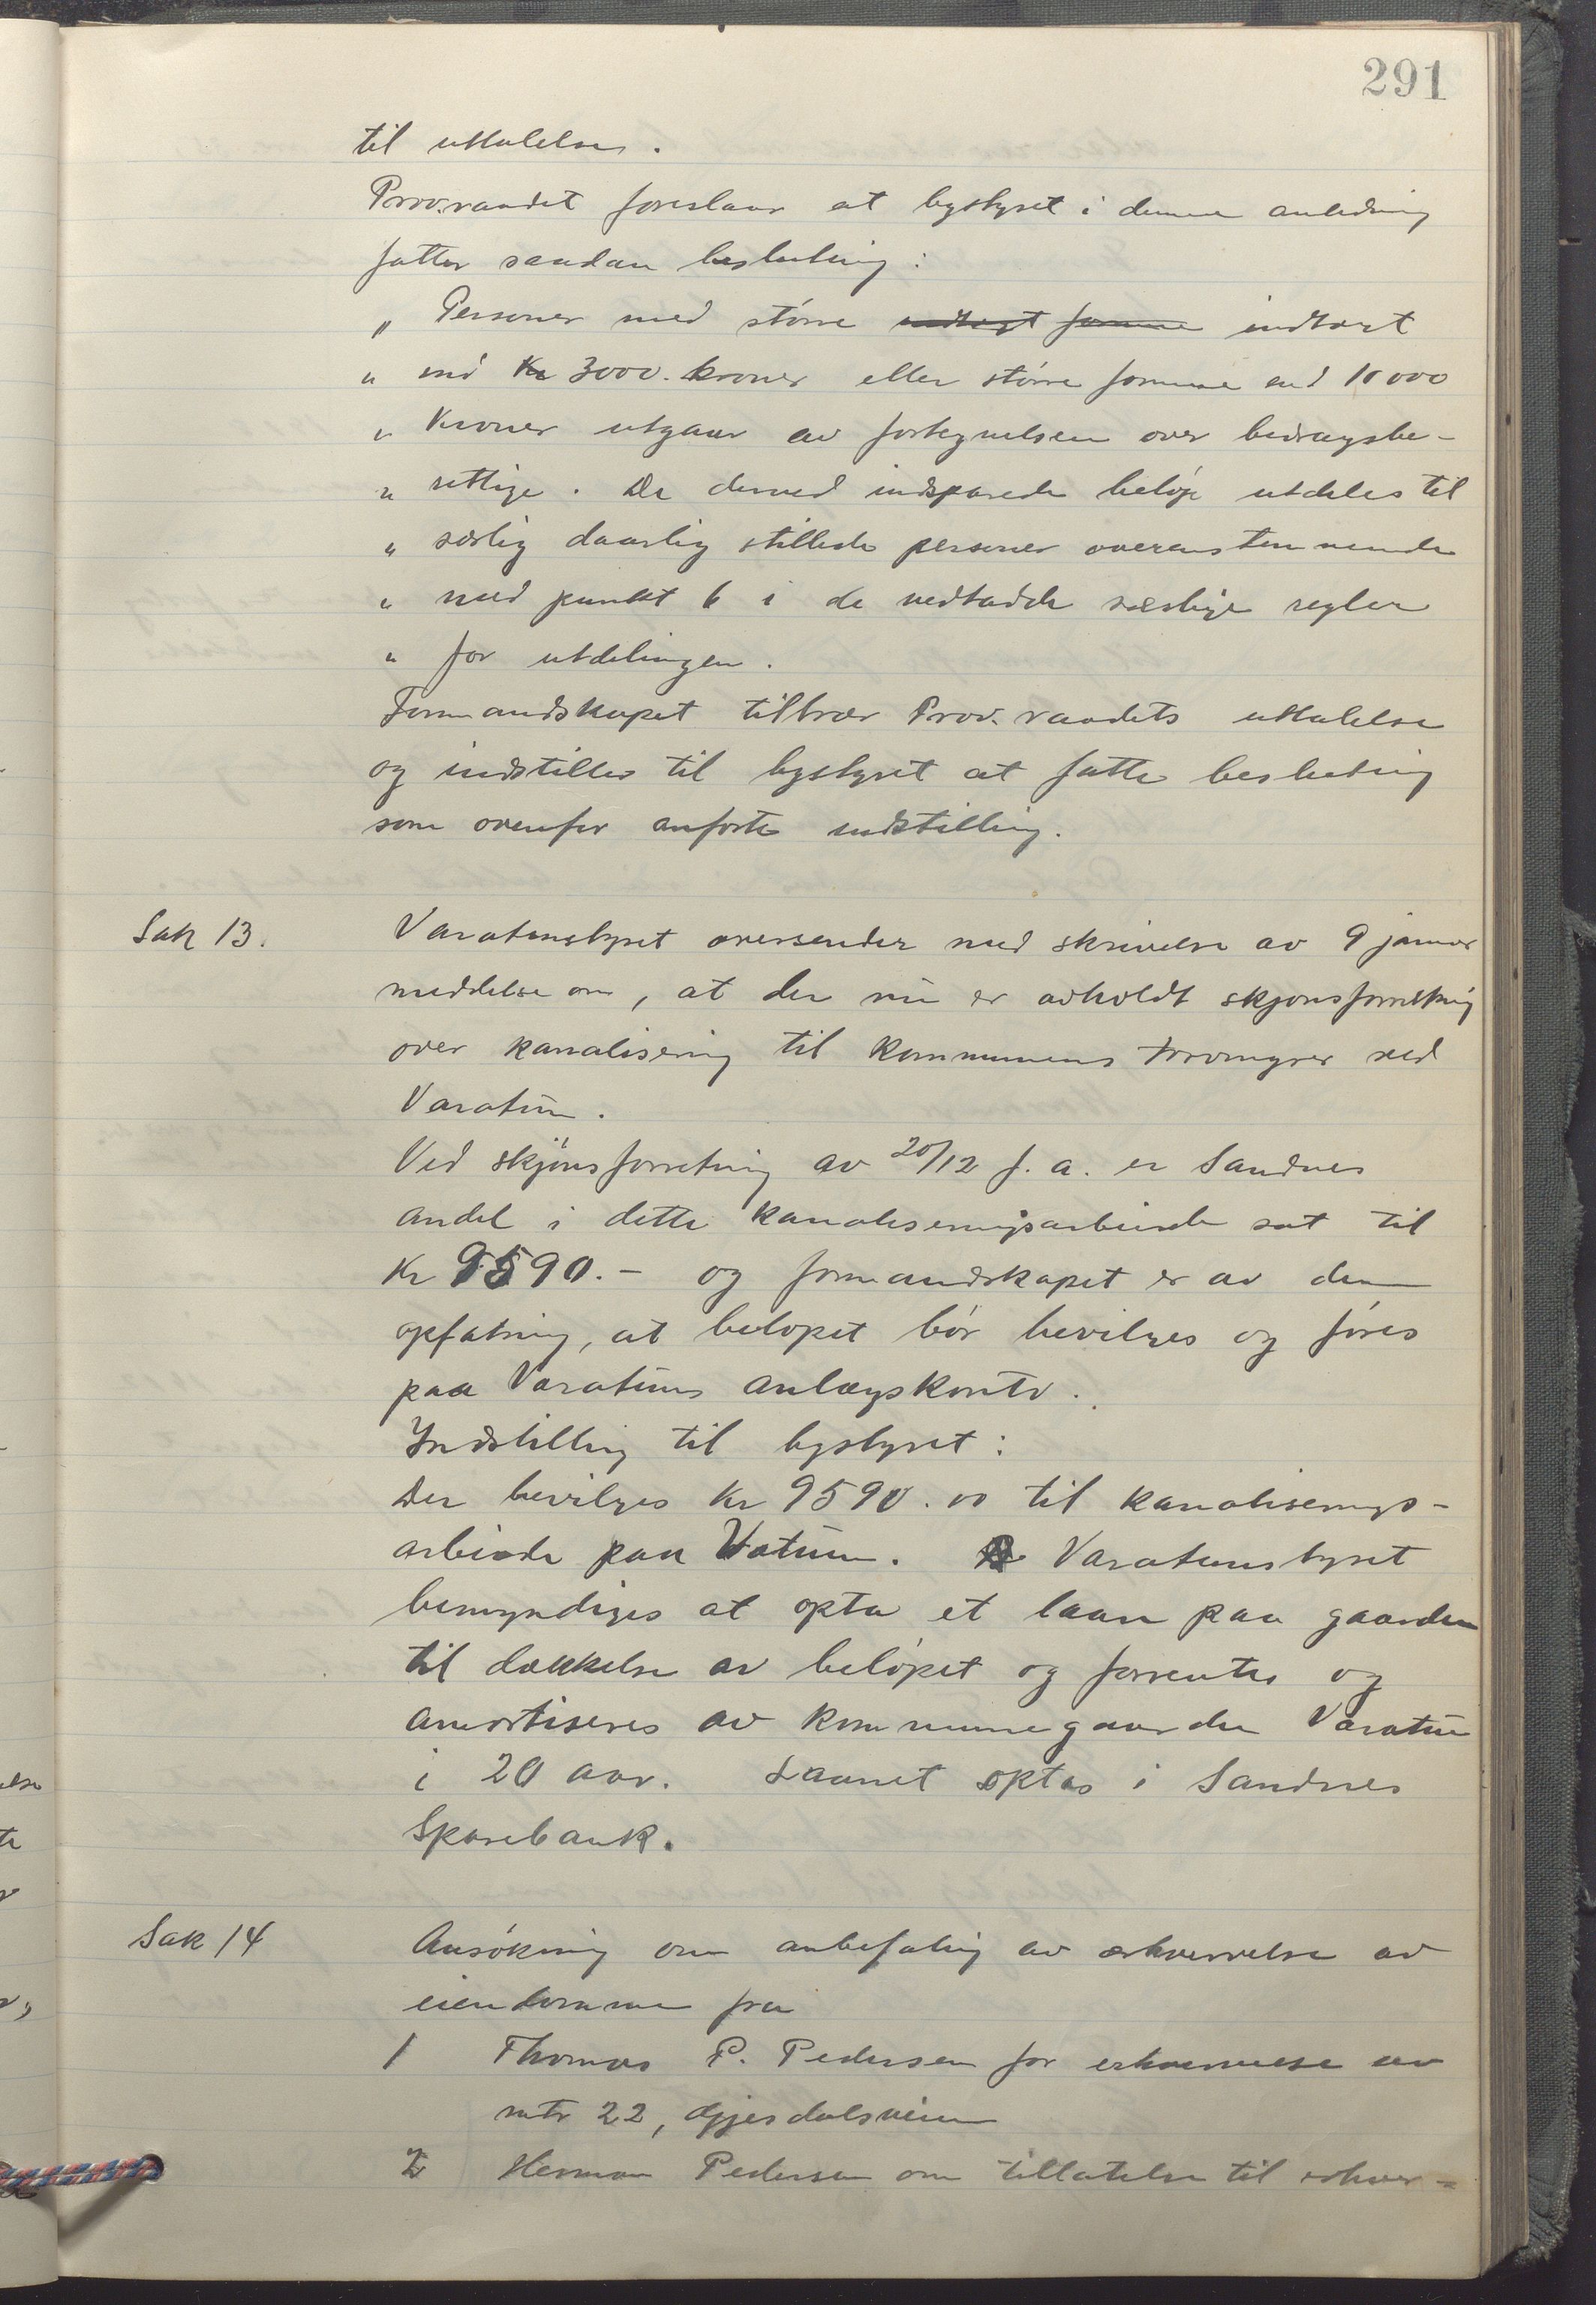 291
til uttalelse.
Prov.raadet foreslaar at bystyret i denne anledning
fatter saadan beslutning:
" Personer med större indtægt formue indtægt
" end Kr 3000. kroner eller större formue end 10000
" Kroner utgaar av fortegnelsen over bidragsbe-
" rettige. De derved indsparede belöp utdeles til
" særlig daarlig stillede personer overenstemmende
" med punkt 6 i de vedtadte særlige regler
" for utdelingen.
Formandskapet tiltrær Prov. raadets uttalelse
og indstiller til bystyret at fatte beslutning
som ovenfor anförte indstilling.
Sak 13.
Varatunstyret oversender med skrivelse av 9 januar
meddelse om, at der nu er avholdt skjonsforretning
over kanalisering til Kommunens torvmyrer ved
Varatun.
Ved skjönsforretning av 20/12 f. a. er Sandnes
andel i dette kanaliseringsarbeide sat til
Kr 9590.- og formandskapet er av den
opfatning, at belopet bör bevilges og föres
paa Varatuns anlægskonto.
Indstilling til bystyret:
Der bevilges Kr 9590.00 til kanaliserings-
arbeide paa Vatun. Varatunstyret
bemyndiges at opta et laan paa gaarden
til dækkelse av belöpet og forrentes og
amortiseres av kommunegaarden Varatun
i 20 aar. Laanet optas i Sandnes
Sparebank.
Sak 14
Ansökning om anbefaling av erhvervelse av
eiendomme fra
1 Thomas P. Pedersen for erhvervelse av
mtr 22, Gjesdalsveien
2 Herman Pedersen om tillatelse til erhver-